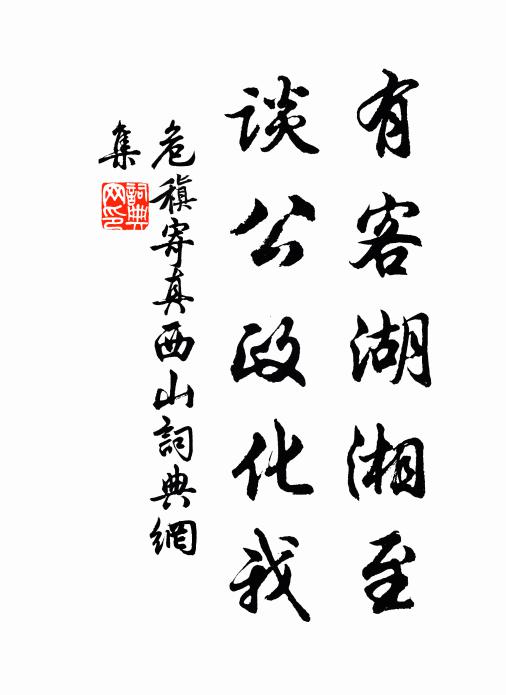 有客湖湘至
谈公政化我
危稹寄真西山詞典網
集
詞典
网印